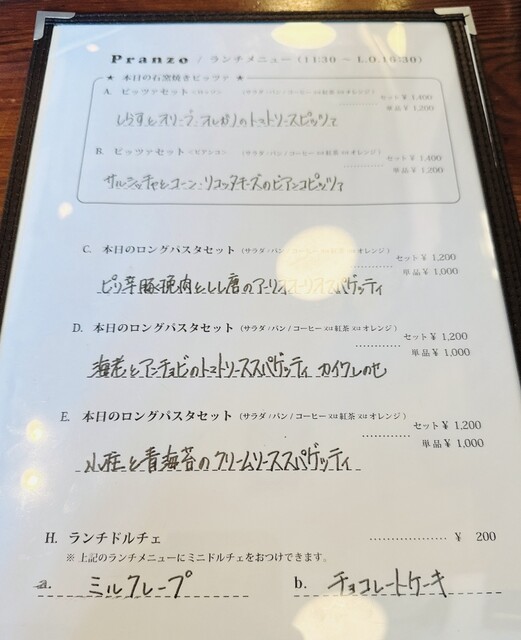 Pranzo / ランチメニュー (11:30 ～ L.O.16:30)
★ 本日の石窯焼きピッツァ ★
A. ピッツァセット (サラダ / パン / コーヒー 又は 紅茶 又は オレンジ) セット ¥ 1,400
単品 ¥ 1,200
しらすとオリーブ、オレガノのトマトソースピッツァ
B. ピッツァセット <ビアンコ> (サラダ / パン / コーヒー 又は 紅茶 又は オレンジ)
セット ¥ 1,400
単品 ¥ 1,200
サルシッチャとコーン・リコッタチーズのビアンコピッツァ
C. 本日のロングパスタセット (サラダ / パン / コーヒー 又は 紅茶 又は オレンジ) セット ¥ 1,200
単品 ¥ 1,000
ピリ辛豚挽肉としし唐のアーリオオーリオスパゲッティ
D. 本日のロングパスタセット (サラダ / パン / コーヒー 又は 紅茶 又は オレンジ) セット ¥ 1,200
単品 ¥ 1,000
海老とアンチョビのトマトソーススパゲッティ カイワレのせ
E. 本日のロングパスタセット (サラダ / パン / コーヒー 又は 紅茶 又は オレンジ) セット ¥ 1,200
単品 ¥ 1,000
小柱と青海苔のクリームソーススパゲッティ
H. ランチドルチェ ¥ 200
※ 上記のランチメニューにミニドルチェをおつけできます。
a. ミルクレープ b. チョコレートケーキ